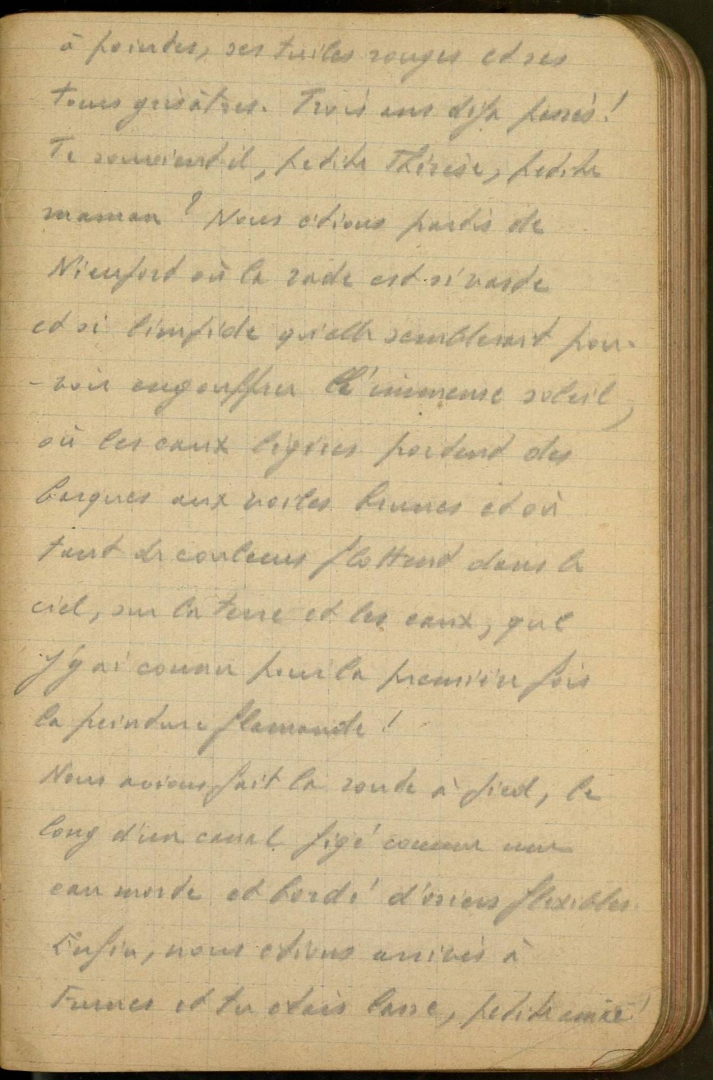 à pointes, ses tuiles rouges et ses
tours grisâtres. Trois ans déjà passés !
Te souvient-il, petite Thérèse, petite
maman ? Nous étions partis de
Nieuport où la rade est si vaste
et si limpide qu'elle semblerait pou-
-voir engouffrer l'immense soleil,
où les eaux légères portent des
barques aux voiles brunes et où
tant de couleurs flottent dans le
ciel, sur la terre et les eaux, que
j'y ai connu pour la première fois
la peinture flamande !
Nous avions fait la route à pied, le
long d'un canal figé comme une
eau morte et bordé d'osiers flexibles.
Enfin, nous étions arrivés à
Furnes et tu étais lasse, petite amie !